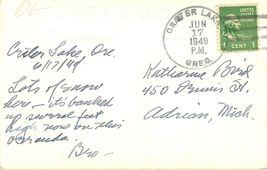 06-
CRATER LAKE
JUN
17
1949
P.M.
OREG.
UNITED STATES
POSTAGE
1 CENT 1
Crater Lake, Ore.
6/17/49
Lots of snow
here - it's banked
up several feet
high now on this
veranda
Bro-
Katharine Bird
450 Dennis St.
Adrian, Mich.